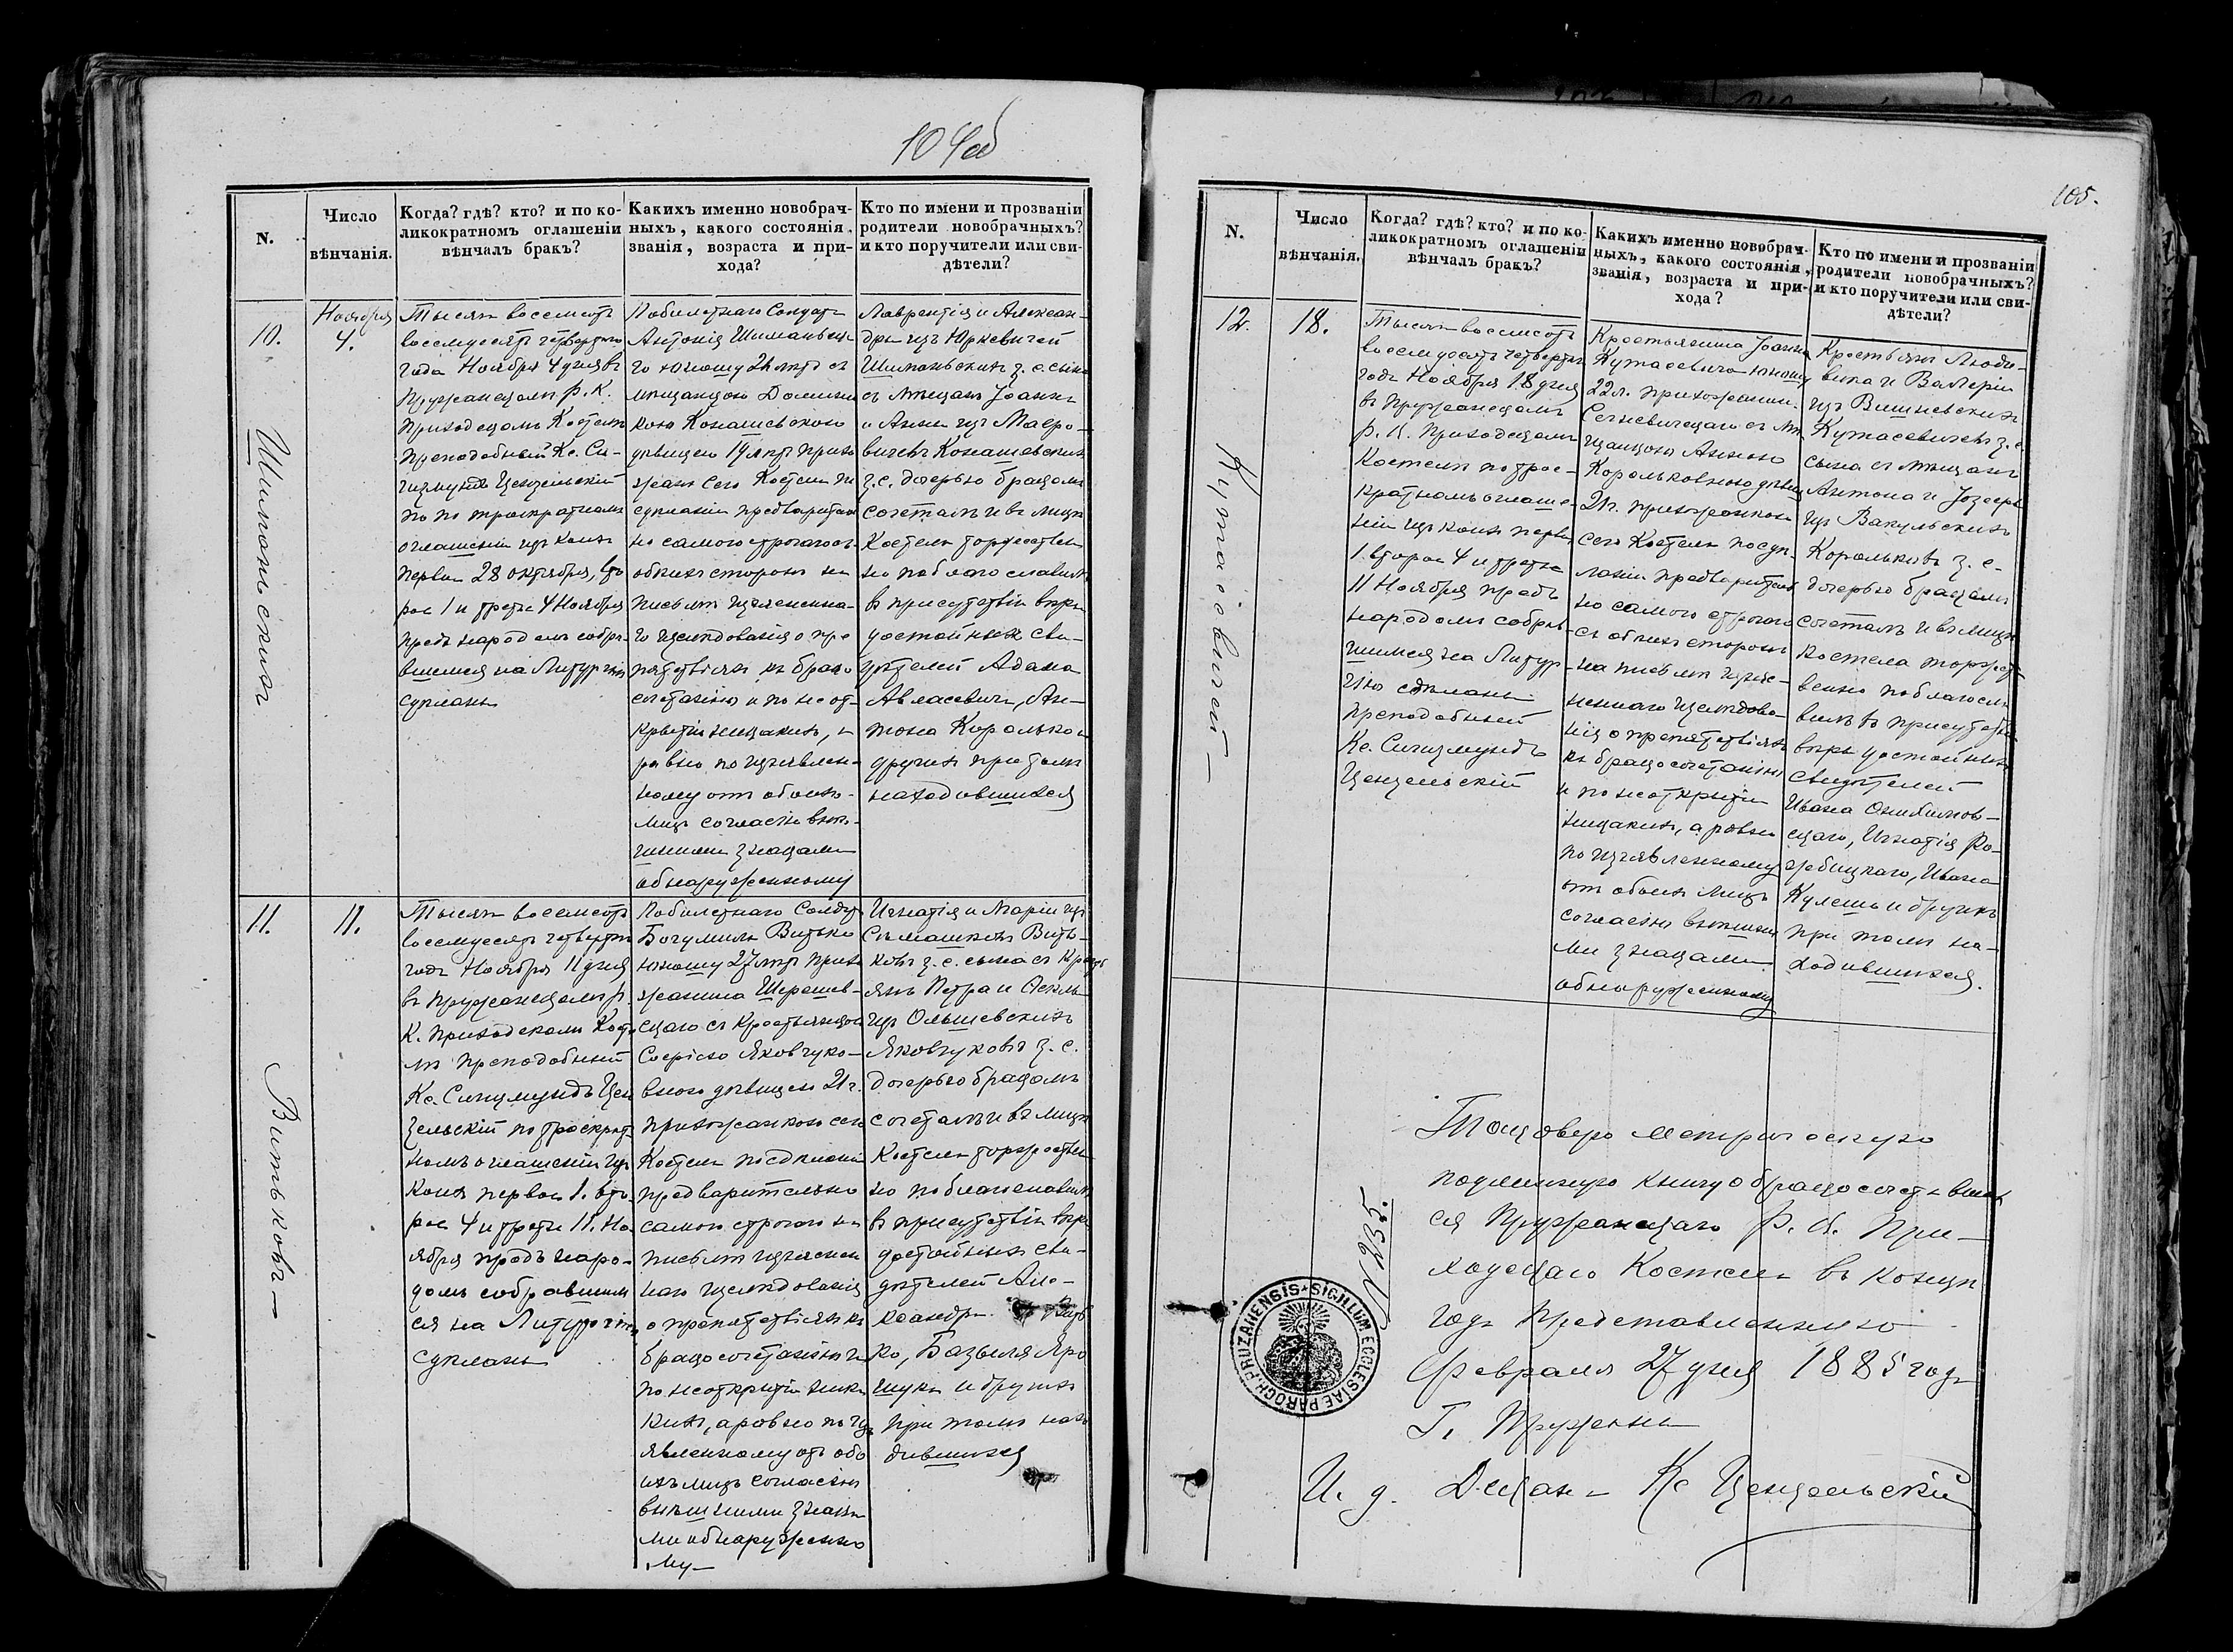 104об
N.
Число
вѣнчанія.
Когда? гдѣ? кто? и по ко-
ликократномъ оглашеніи
вѣнчалъ бракъ?
Какихъ именно новобрач-
ныхъ, какого состоянія,
званія, возраста и при-
хода?
Кто по имени и прозваніи
родители новобрачныхъ?
и кто поручители или сви-
дѣтели?
10.
Ноября
4.
Шимоньскихъ
Тысяча восемсотъ
восемдесятъ четвертаго
года Ноября 4 дня въ
Пружанскомъ Р. К.
Приходскомъ Костелѣ
Преподобный Кс. Си-
гизмундъ Цендельскій
по троекратномъ
оглашеніи изъ коихъ
первое 28 октября, вто
рое 1 и третье 4 Ноября
предъ народомъ собра-
вшимся на Литургію
сдѣланы
Побилетнаго Солдата
Антонія Шиманьска-
го юношу 26 лѣтъ съ
мѣщанкою Домини
кою Конашевскою
дѣвицею 19 лѣтъ прихо
жанъ сего Костела по
сдѣланіи предваритель
но самого строгаго съ
обѣихъ сторонъ на
письмѣ изъясненна-
го изслѣдованія о пре
пятствіяхъ къ брако
сочетанію и по неот-
крытіи никакихъ, а
равно по изъявлен-
ному отъ обоихъ
лицъ согласію внѣ-
шними знаками
обнаруженному
Лаврентія и Алексан-
дры изъ Юркевичей
Шиманьскихъ з. с. сына
съ мѣщанъ Іоанна
и Анны изъ Мавро-
вичевъ Конашевскихъ
з. с. дочерью бракомъ
сочеталъ и въ лицѣ
Костела торжествен
но поблагословилъ
въ присутствіи вѣры
достойныхъ сви-
дѣтелей Адама
Авласевича, Ан-
тона Королько и
другихъ при томъ
находившихся
11.
11.
Витьковъ
Тысяча восемсотъ
восемдесятъ четвертаго
года Ноября 11 дня
въ Пружанскомъ Р.
К. Приходскомъ Косте
лѣ Преподобный
Кс. Сигизмундъ Цен
дельскій по троекрат
номъ оглашеніи изъ
коихъ первое 1. вто
рое 4 и третье 11. Но
ября предъ наро-
домъ собравшим
ся на Литургію
сдѣланы
Побилетнаго Солдата
Богумила Витько
юношу 27 лѣтъ прихо
жанина Шерешев-
скаго съ Крестьянкою
Софіею Яковчуко-
вною дѣвицею 21 г.
прихожанкою сего
Костела по сдѣланіи
предварительно
самого строгаго на
письмѣ изъяснен
наго изслѣдованія
о препятствіяхъ къ
бракосочетанію и
по неоткрытіи ника
кихъ, а равно по из
явленному отъ обо
ихъ лицъ согласію
внѣшними знака
ми обнаруженно
му
Игнатія и Маріи изъ
Сѣмашковъ Вить-
ковъ з. с. сына съ Крест
янъ Петра и
изъ Ольшевскихъ
Яковчуковъ з. с.
дочерью бракомъ
сочеталъ и въ лицѣ
Костела торжествен
но поблагословилъ
въ присутствіи вѣры
достойныхъ сви-
дѣтелей Але-
ксандра Вить
ко, Базыля Яро
шука и другихъ
при томъ нахо
дившихся
105.
N.
Число
вѣнчанія.
Когда? гдѣ? кто? и по ко-
ликократномъ оглашеніи
вѣнчалъ бракъ?
Какихъ именно новобрач-
ныхъ, какого состоянія,
званія, возраста и при-
хода?
Кто по имени и прозваніи
родители новобрачныхъ?
и кто поручители или сви-
дѣтели?
12.
18.
Кутасевичей
Тысяча восемсотъ
восемдесятъ четвертаго
года Ноября 18 дня
въ Пружанскомъ
Р. К. Приходскомъ
Костелѣ по трое-
кратномъ оглаше-
ніи изъ коихъ первое
1. второе 4 и третье
11 Ноября предъ
народомъ собрав-
шимся на Литур-
гію сдѣланы
Преподобный
Кс. Сигизмундъ
Цендельскій
Крестьянина Іоанна
Кутасевича юношу
22 л. прихожанина
Сегневичскаго съ мѣ
щанкою Анною
Корольковною дѣвицею
21 г. прихожанкою
сего Костела по сдѣ-
ланіи предваритель
но самого строгаго
съ обѣихъ сторонъ
на письмѣ изъяс-
неннаго изслѣдова-
нія о препятствіяхъ
къ бракосочетанію
и по неоткрытіи
никакихъ, а равно
по изъявленному
отъ обоихъ лицъ
согласію внѣшни
ми знаками
обнаруженному
Крестьянъ Людо-
вика и Валеріи
изъ Вишневскихъ
Кутасевичевъ з. с.
сына съ мѣщанъ
Антона и Іозефы
изъ Вакульскихъ
Корольковъ з. с.
дочерью бракомъ
сочеталъ и въ лицѣ
Костела торжест
венно поблагосло
вилъ въ присутствіи
вѣры достойныхъ
свидѣтелей
Ивана
скаго, Игнатія Ро-
жбицкаго, Ивана
Кулеша и другихъ
при томъ на-
ходившихся.
Таковую метрическую
подлинную книгу о бракосочетавших
ся Пружанскаго Р. К. При-
ходскаго Костела въ концѣ
года представленную
Февраля 27 дня 1885 года
Г. Пружаны
И. д. Декана Кс Цендельскій
SIGILLUM ECCLESIAE PAROCH. PRUZANENSIS